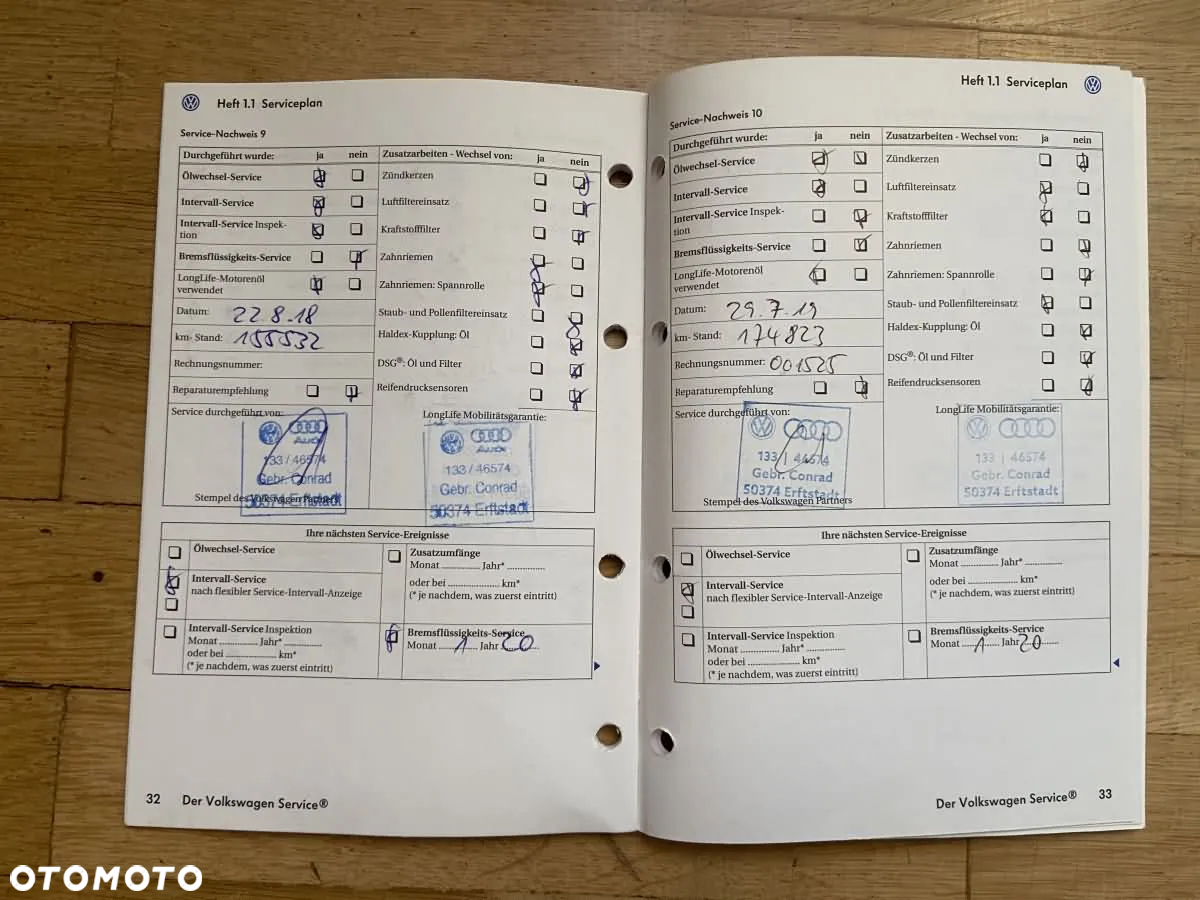 Heft 1.1 Serviceplan
Service-Nachweis 9
Durchgeführt wurde: ja nein
Ölwechsel-Service
Intervall-Service
Intervall-Service Inspek-
tion
Bremsflüssigkeits-Service
LongLife-Motorenöl
verwendet
Datum: 22.8.18
km- Stand: 155532
Rechnungsnummer:
Reparaturempfehlung
Service durchgeführt von:
Audi
133 / 46574
Gebr. Conrad
50374 Erftstadt
Stempel des Volkswagen Partners
Zusatzarbeiten - Wechsel von: ja nein
Zündkerzen
Luftfiltereinsatz
Kraftstofffilter
Zahnriemen
Zahnriemen: Spannrolle
Staub- und Pollenfiltereinsatz
Haldex-Kupplung: Öl
DSG®: Öl und Filter
Reifendrucksensoren
LongLife Mobilitätsgarantie:
Audi
133 / 46574
Gebr. Conrad
50374 Erftstadt
Ihre nächsten Service-Ereignisse
Ölwechsel-Service
Intervall-Service
nach flexibler Service-Intervall-Anzeige
Intervall-Service Inspektion
Monat ............. Jahr* .............
oder bei ................. km*
(* je nachdem, was zuerst eintritt)
Zusatzumfänge
Monat ............. Jahr* .............
oder bei ................. km*
(* je nachdem, was zuerst eintritt)
Bremsflüssigkeits-Service
Monat 1 Jahr 20
32 Der Volkswagen Service®
Heft 1.1 Serviceplan
Service-Nachweis 10
Durchgeführt wurde: ja nein
Ölwechsel-Service
Intervall-Service
Intervall-Service Inspek-
tion
Bremsflüssigkeits-Service
LongLife-Motorenöl
verwendet
Datum: 29.7.19
km- Stand: 174823
Rechnungsnummer: 001525
Reparaturempfehlung
Service durchgeführt von:
133 | 46574
Gebr. Conrad
50374 Erftstadt
Stempel des Volkswagen Partners
Zusatzarbeiten - Wechsel von: ja nein
Zündkerzen
Luftfiltereinsatz
Kraftstofffilter
Zahnriemen
Zahnriemen: Spannrolle
Staub- und Pollenfiltereinsatz
Haldex-Kupplung: Öl
DSG®: Öl und Filter
Reifendrucksensoren
LongLife Mobilitätsgarantie:
133 | 46574
Gebr. Conrad
50374 Erftstadt
Ihre nächsten Service-Ereignisse
Ölwechsel-Service
Intervall-Service
nach flexibler Service-Intervall-Anzeige
Intervall-Service Inspektion
Monat ............. Jahr* .............
oder bei ................. km*
(* je nachdem, was zuerst eintritt)
Zusatzumfänge
Monat ............. Jahr* .............
oder bei ................. km*
(* je nachdem, was zuerst eintritt)
Bremsflüssigkeits-Service
Monat 1 Jahr 20
Der Volkswagen Service® 33
OTOMOTO